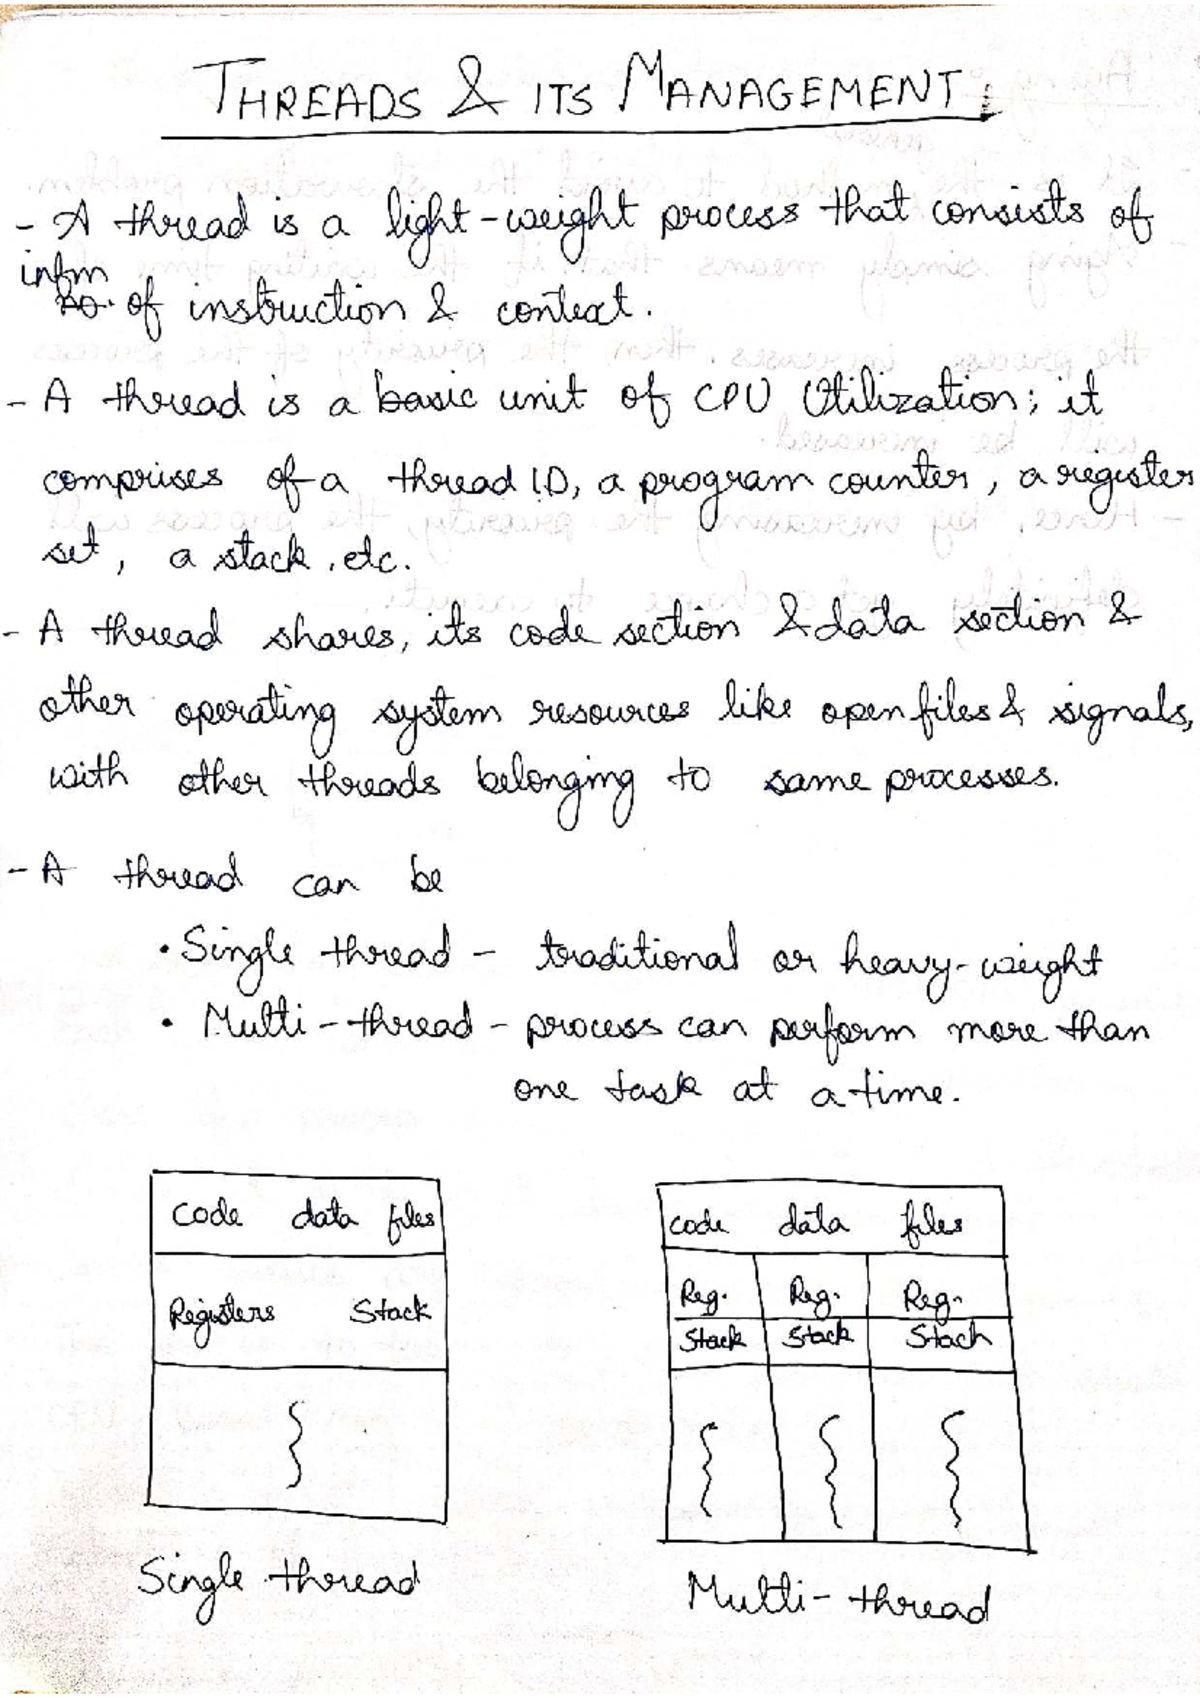 THREADS & ITS MANAGEMENT:
- A thread is a light-weight process that consists of
infm
no. of instruction & context.
- A thread is a basic unit of CPU Utilization; it
comprises of a thread ID, a program counter, a register
set, a stack, etc.
- A thread shares, its code section & data section &
other operating system resources like open files & signals,
with other threads belonging to same processes.
- A thread can be
• Single thread - traditional or heavy-weight
• Multi-thread - process can perform more than
one task at a time.
code data files
Registers Stack
Single thread
code data files
Reg. Reg. Reg.
Stack Stack Stack
Multi-thread